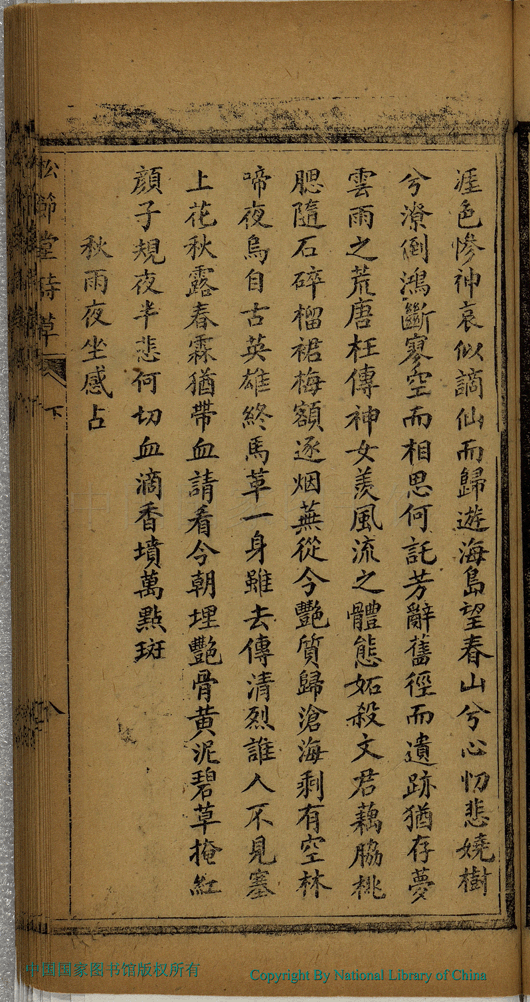 涯色惨神哀似謫仙而歸遊海島望春山兮心忉悲嬈樹
兮潦倒鴻斷寥空而相思何託芳辭舊徑而遺跡猶存夢
雲雨之荒唐枉傳神女羨風流之體態妬殺文君藕脇桃
腮隨石碎榴裙梅額逐烟蕪從今艷質歸滄海剩有空林
啼夜烏自古英雄終馬革一身雖去傳清烈誰人不見塞
上花秋露春霖猶帶血請看今朝埋艷骨黄泥碧草掩紅
顔子規夜半悲何切血滴香墳萬點斑
秋雨夜坐感占
松節堂詩草
下
八
中国国家图书馆版权所有
Copyright By National Library of China